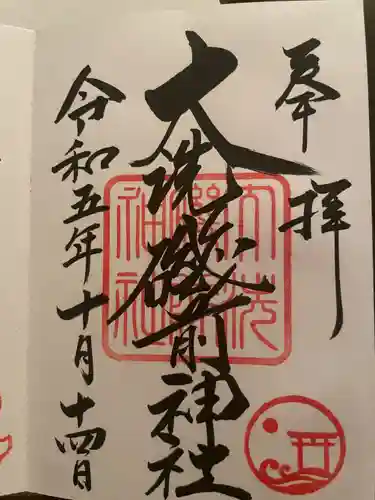 奉拝
大洗磯前神社
令和五年十月十四日
大洗磯前神社